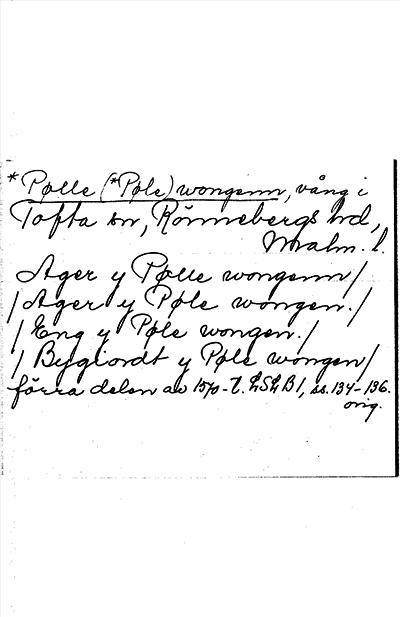 *Pølle (*Pøle) wongenn, vång i
Tofta sn, Rönnebergs hd,
Malm. l.
Ager y Pølle wongenn/
/Ager y Pøle wongen./
/Eng y Pøle wongen./
/Bygiordt y Pøle wongen/
förra delen av 1570-t. LSLB1, ss. 134-136.
orig.